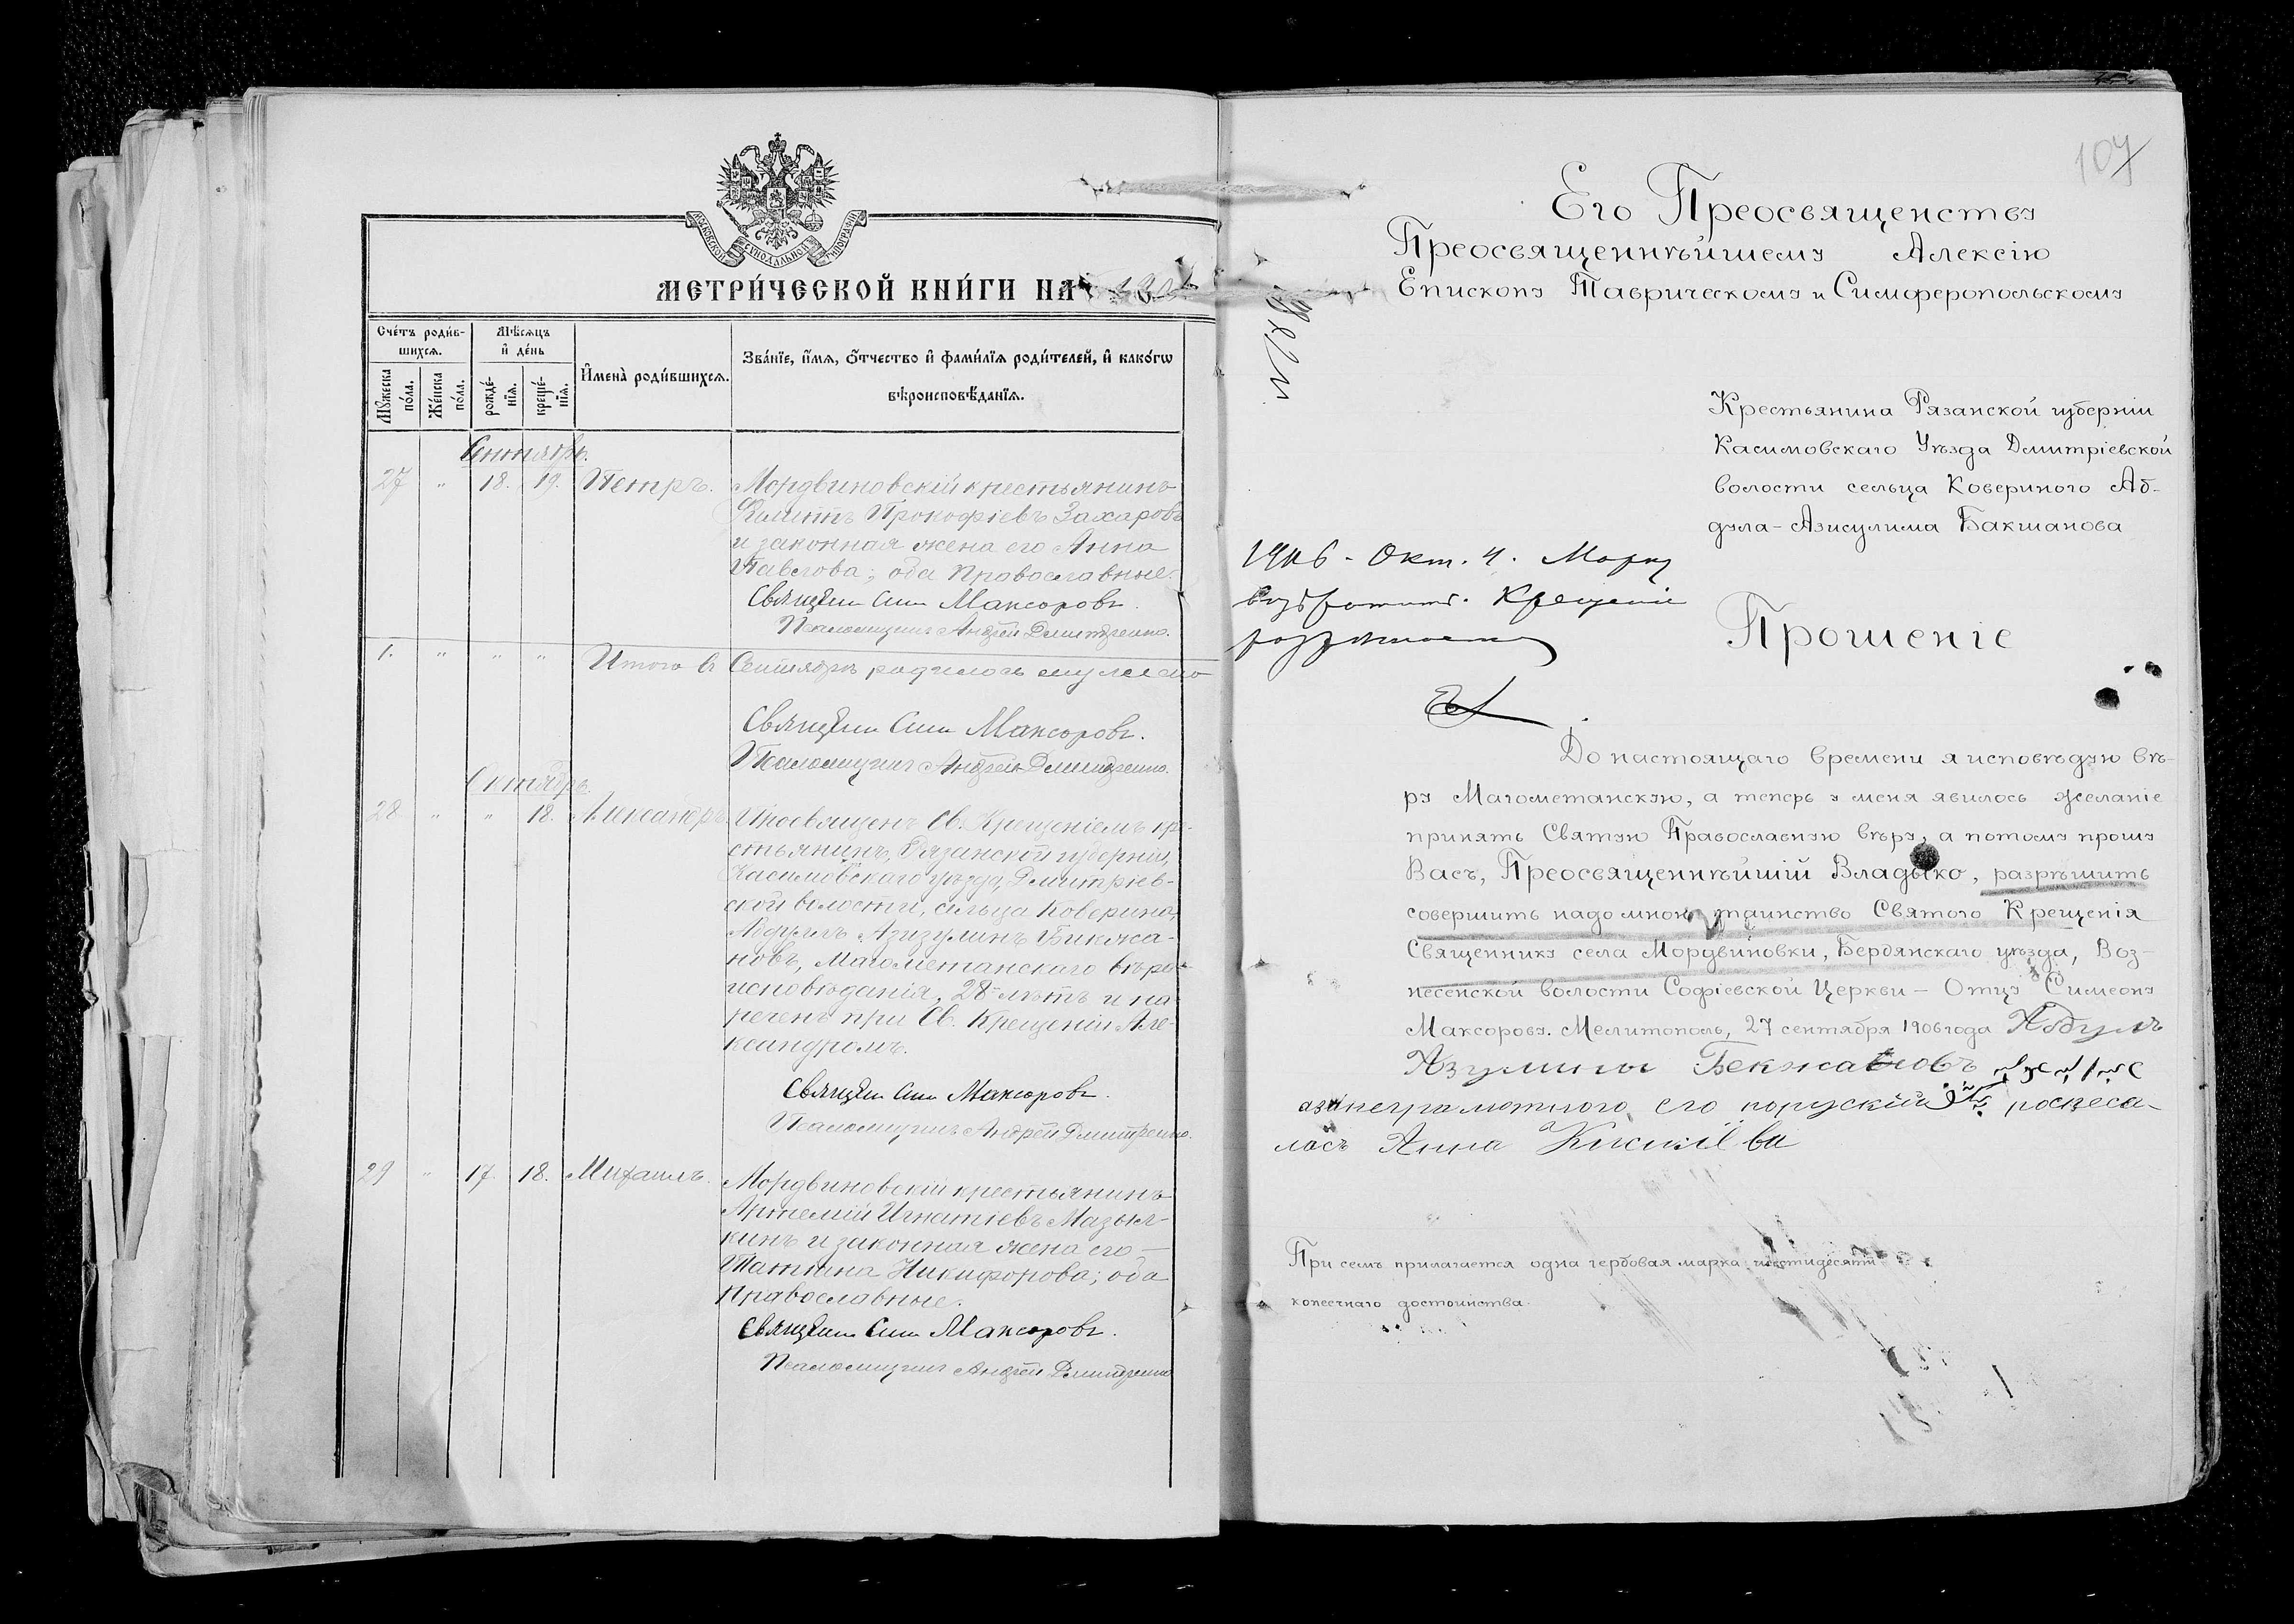 МОСКОВСКОЙ СѴНОДАЛЬНОЙ ТИПОГРАФІИ
МЕТРИ́ЧЕСКОЙ КНИ́ГИ НА
Сче́тъ роди́в-
шихсѧ.
Мѣ́сѧцъ
и҆ де́нь
Мꙋ́жеска
по́ла.
Же́нска
по́ла.
рожде́-
нїѧ.
креще́-
нїѧ.
И҆мена̀ роди́вшихсѧ.
Зва́нїе, и҆́мѧ, ѻ҆́тчество и҆ фами́лїѧ роди́телей, и҆ како́гѡ
вѣроисповѣ́данїѧ.
Сентябрь.
27 " 18. 19. Петръ. Мордвиновскій крестьянинъ
Прокофіевъ Захаровъ
и законная жена его Анна
Павлова; оба Православные.
Священ. Сим. Максоровъ.
Псаломщикъ Андрей Дмитренко.
1. " " " Итого въ Сентябрѣ родилось мужеско
Священ. Сим. Максоровъ.
Псаломщикъ Андрей Дмитренко.
Октябрь.
28 " " 18. Александръ Просвященъ Св. Крещеніемъ кре-
стьянинъ, Рязанской губерніи,
Касимовскаго уѣзда, Дмитріев-
ской волости, сельца Коверино,
Абдулъ Азизулинъ Бикжа-
новъ, Магометанскаго вѣро-
исповѣданія, 28 лѣтъ и на-
реченъ при Св. Крещеніи Але-
ксандромъ.
Священ. Сим. Максоровъ.
Псаломщикъ Андрей Дмитренко.
29 " 17. 18. Михаилъ. Мордвиновскій крестьянинъ
Артемій Игнатіевъ Мазыл-
кинъ и законная жена его —
Татіана Никифорова; оба
Православные.
Священ. Сим. Максоровъ.
Псаломщикъ Андрей Дмитренко
107
Его Преосвященству
Преосвященнѣйшему Алексію
Епископу Таврическому и Симферопольскому
Крестьянина Рязанской губерніи
Касимовскаго Уѣзда Дмитріевской
волости сельца Коверинаго Аб-
дула-Азисулима Бакшанова
1906 - Окт. 4. Марку
возвратить. Крещеніе
разрѣшается
Прошеніе
До настоящаго времени я исповѣдую вѣ-
ру Магометанскую, а теперь у меня явилось желаніе
принять Святую Православную вѣру, а потому прошу
Васъ, Преосвященнѣйшій Владыко, разрѣшить
совершить надо мною таинство Святого Крещенія
Священнику села Мордвиновки, Бердянскаго уѣзда, Воз-
несенской волости Софіевской Церкви — Отцу Симеону
Максорову. Мелитополь, 27 сентября 1906 года Абдулъ
Азулинъ Бекжановъ
азанеграмотного его порускій росписа-
лась Анна
При семъ прилагается одна гербовая марка шестидесяти
копеечнаго достоинства.